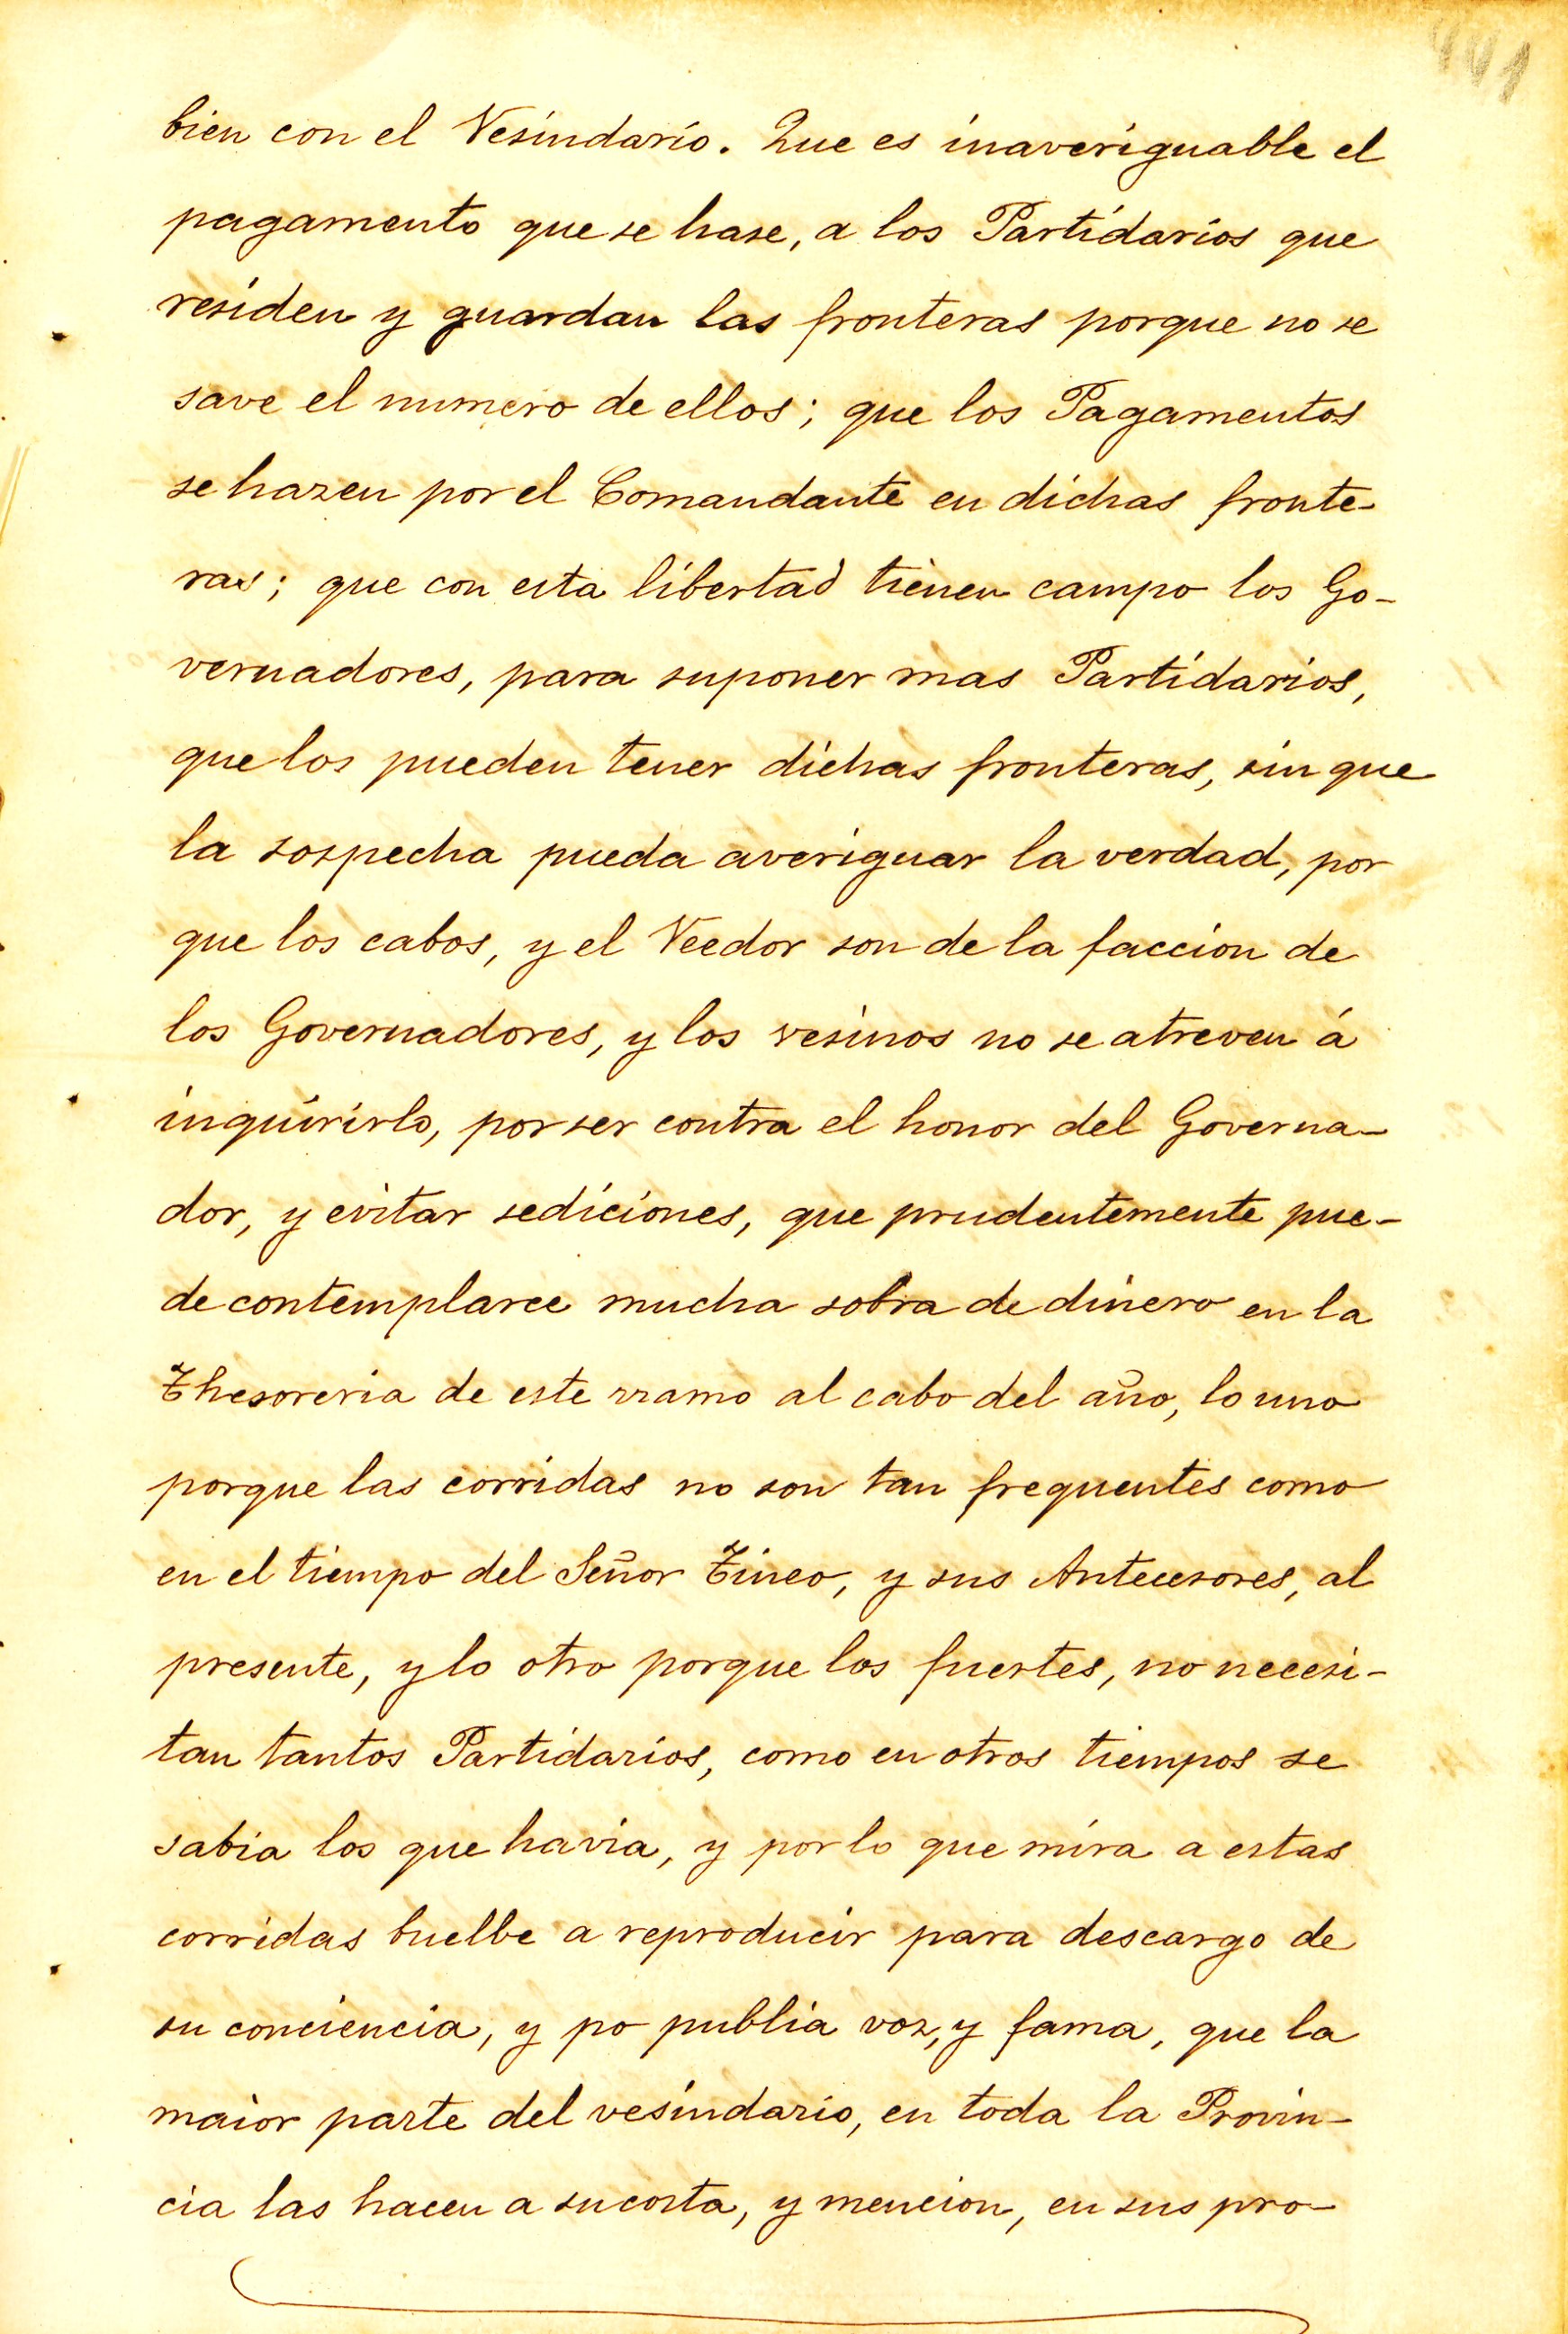 441
bien con el Vesindario. Que es inaveriguable el
pagamento que se hase, a los Partidarios que
residen y guardan las fronteras porque no se
save el numero de ellos; que los Pagamentos
se hazen por el Comandante en dichas fronte-
ras; que con esta libertad tienen campo los Go-
vernadores, para suponer mas Partidarios,
que los pueden tener dichas fronteras, sin que
la sospecha pueda averiguar la verdad, por
que los cabos, y el Veedor son de la faccion de
los Governadores, y los vesinos no se atreven á
inquirirlo, por ser contra el honor del Governa-
dor, y evitar sediciones, que prudentemente pue-
de contemplarce mucha sobra de dinero en la
Thesoreria de este rramo al cabo del año, lo uno
porque las corridas no son tan frequentes como
en el tiempo del Señor Tineo, y sus Antecesores, al
presente, y lo otro porque los fuertes, no necesi-
tan tantos Partidarios, como en otros tiempos se
sabia los que havia, y por lo que mira a estas
corridas buelbe a reproducir para descargo de
su conciencia, y po publia voz, y fama, que la
maior parte del vesindario, en toda la Provin-
cia las hacen a su costa, y mencion, en sus pro-